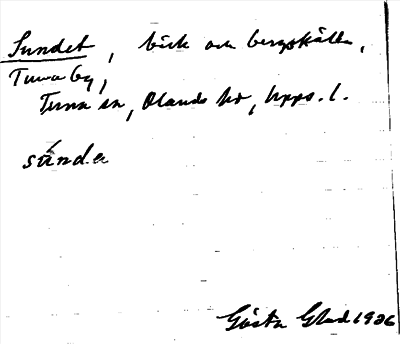 Sundet, bäck och bergskälla,
Tuna by,
Tuna sn, Olands hd, Upps. l.
súnda
Gösta Glad 1926